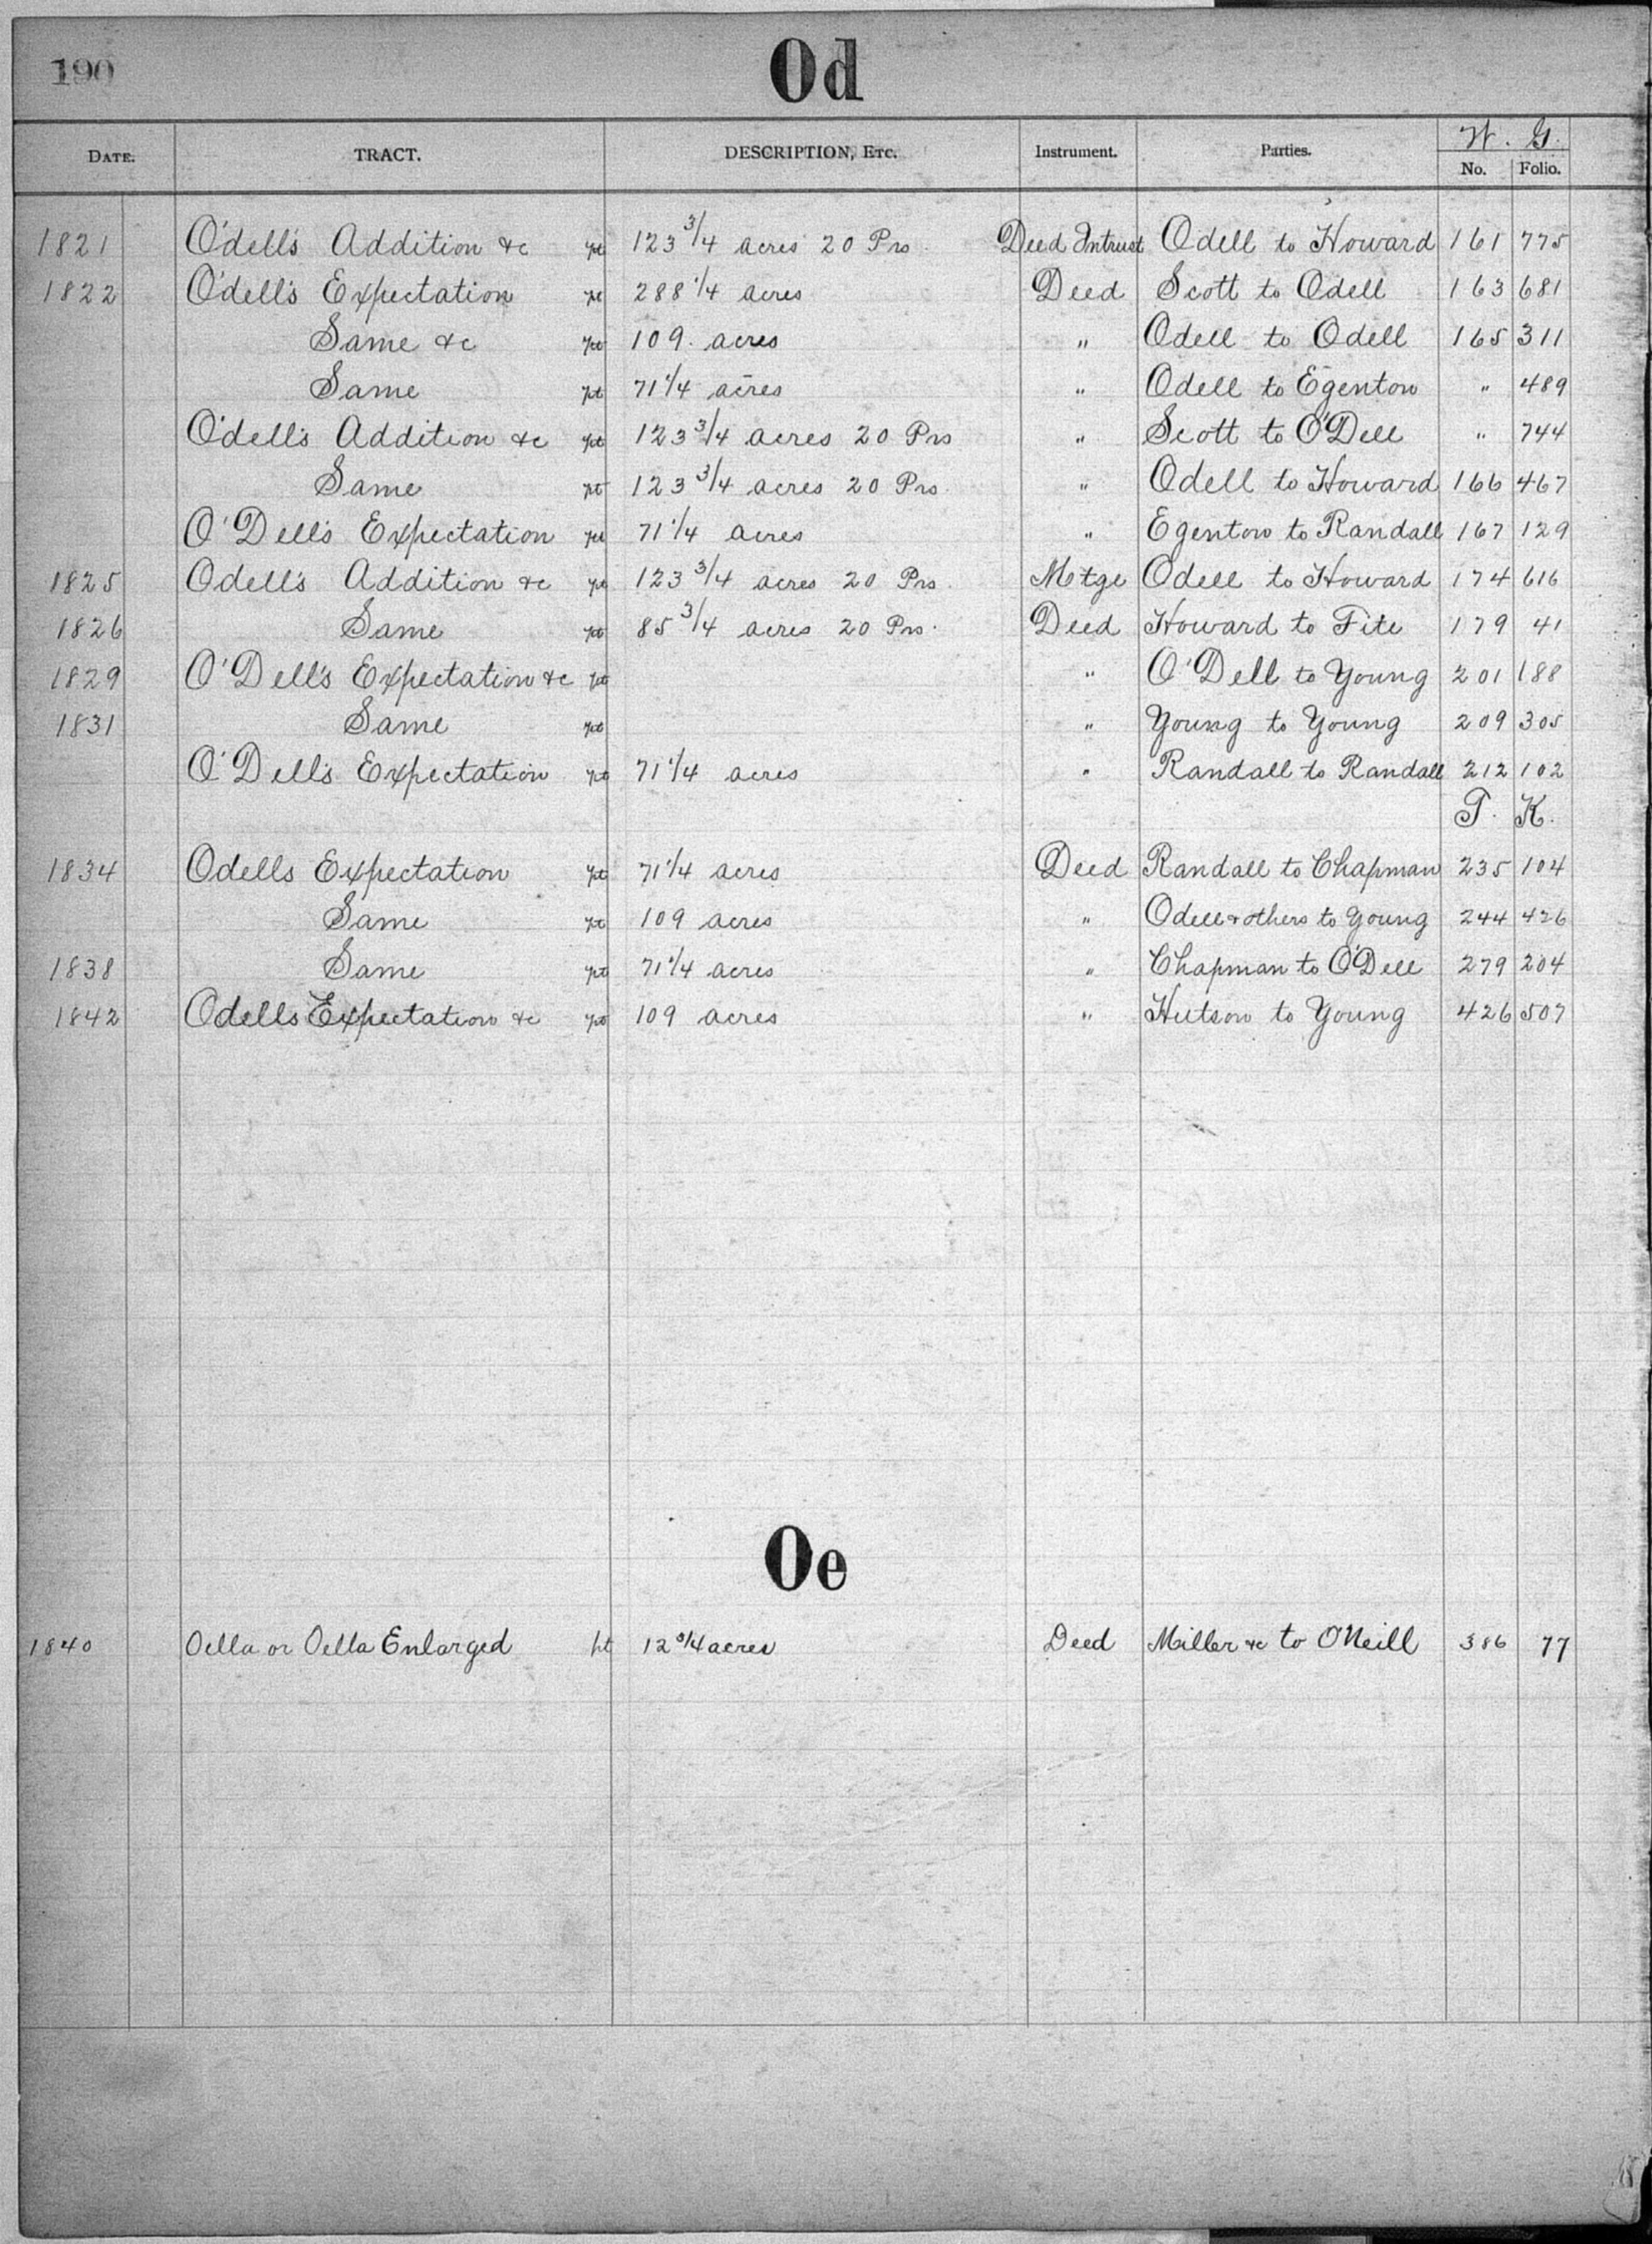 190 Od
W. G.
DATE. TRACT. DESCRIPTION, ETC. Instrument. Parties. No. Folio.
1821 O'dell's Addition &c pt 123 3/4 acres 20 Prs Deed Intrust Odell to Howard 161 775
1822 O'dell's Expectation pt 288 1/4 acres Deed Scott to Odell 163 681
Same &c pt 109. acres " Odell to Odell 165 311
Same pt 71 1/4 acres " Odell to Egenton " 489
O'dell's Addition &c pt 123 3/4 acres 20 Prs " Scott to O'Dell " 744
Same pt 123 3/4 acres 20 Prs. " Odell to Howard 166 467
O'Dell's Expectation pt 71 1/4 acres " Egenton to Randall 167 129
1825 Odell's Addition &c pt 123 3/4 acres 20 Prs. Mtge Odell to Howard 174 616
1826 Same pt 85 3/4 acres 20 Prs. Deed Howard to Fite 179 41
1829 O'Dell's Expectation &c pt " O'Dell to Young 201 188
1831 Same pt " Young to Young 209 305
O'Dell's Expectation pt 71 1/4 acres " Randall to Randall 212 102
T. K.
1834 Odells Expectation pt 71 1/4 acres Deed Randall to Chapman 235 104
Same pt 109 acres " Odell & others to Young 244 426
1838 Same pt 71 1/4 acres " Chapman to O'Dell 279 204
1842 Odells Expectation &c pt 109 acres " Hutson to Young 426 507
Oe
1840 Oella or Oella Enlarged pt 12 3/4 acres Deed Miller &c to O'Neill 386 77